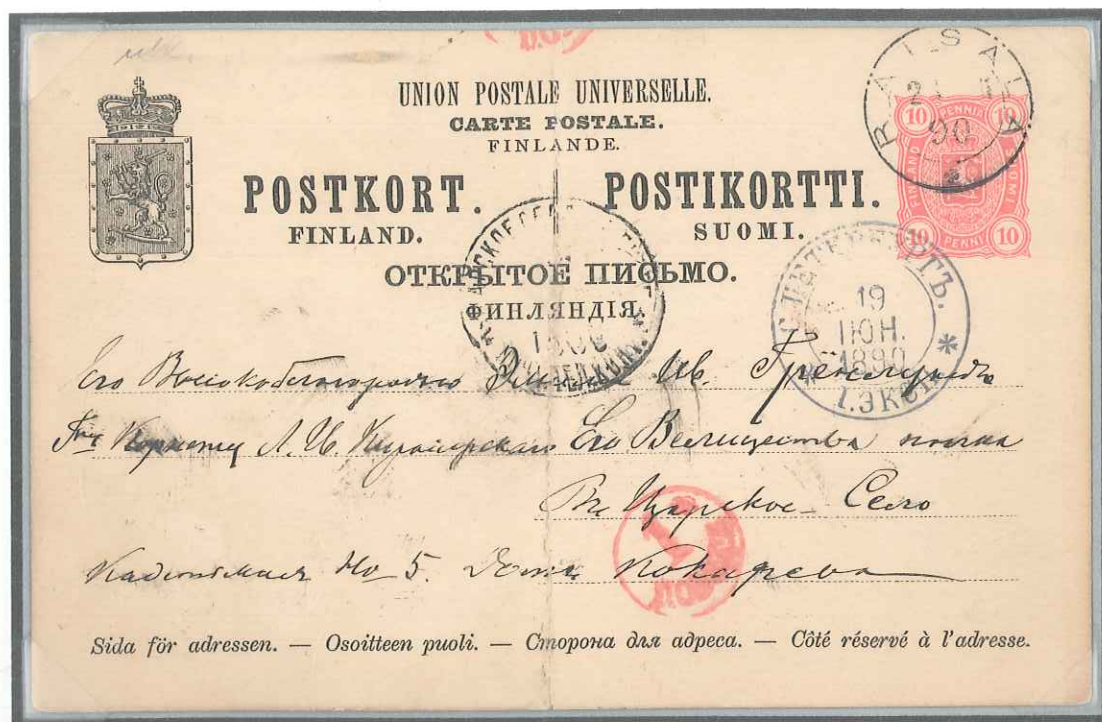 UNION POSTALE UNIVERSELLE.
CARTE POSTALE.
FINLANDE.
POSTKORT. POSTIKORTTI.
FINLAND. SUOMI.
ОТКРЫТОЕ ПИСЬМО.
ФИНЛЯНДІЯ.
RAISALA
90
10 PENNI 10
FINLAND SUOMI
10 PENNI 10
С.ПЕТЕРБУРГЪ.
19
ІЮН.
1890
1.ЭКСП.
Его Высокоблагородію Ив.
Корнету Л. Г. Кирасирскаго Его Величества полка
Въ Царское Село
No 5. Домъ Кокарева
Sida för adressen. — Osoitteen puoli. — Сторона для адреса. — Côté réservé à l'adresse.